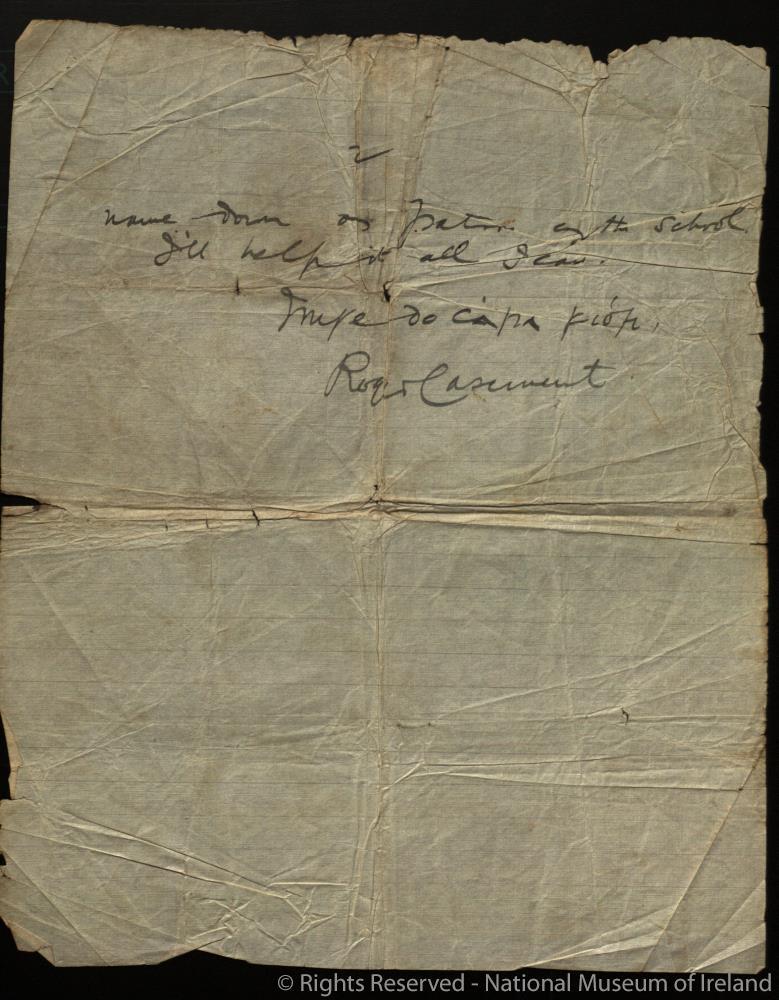 2
name down as Patron of the School.
I'll help it all I can.
Mise do ċara fíor,
Roger Casement
© Rights Reserved - National Museum of Ireland